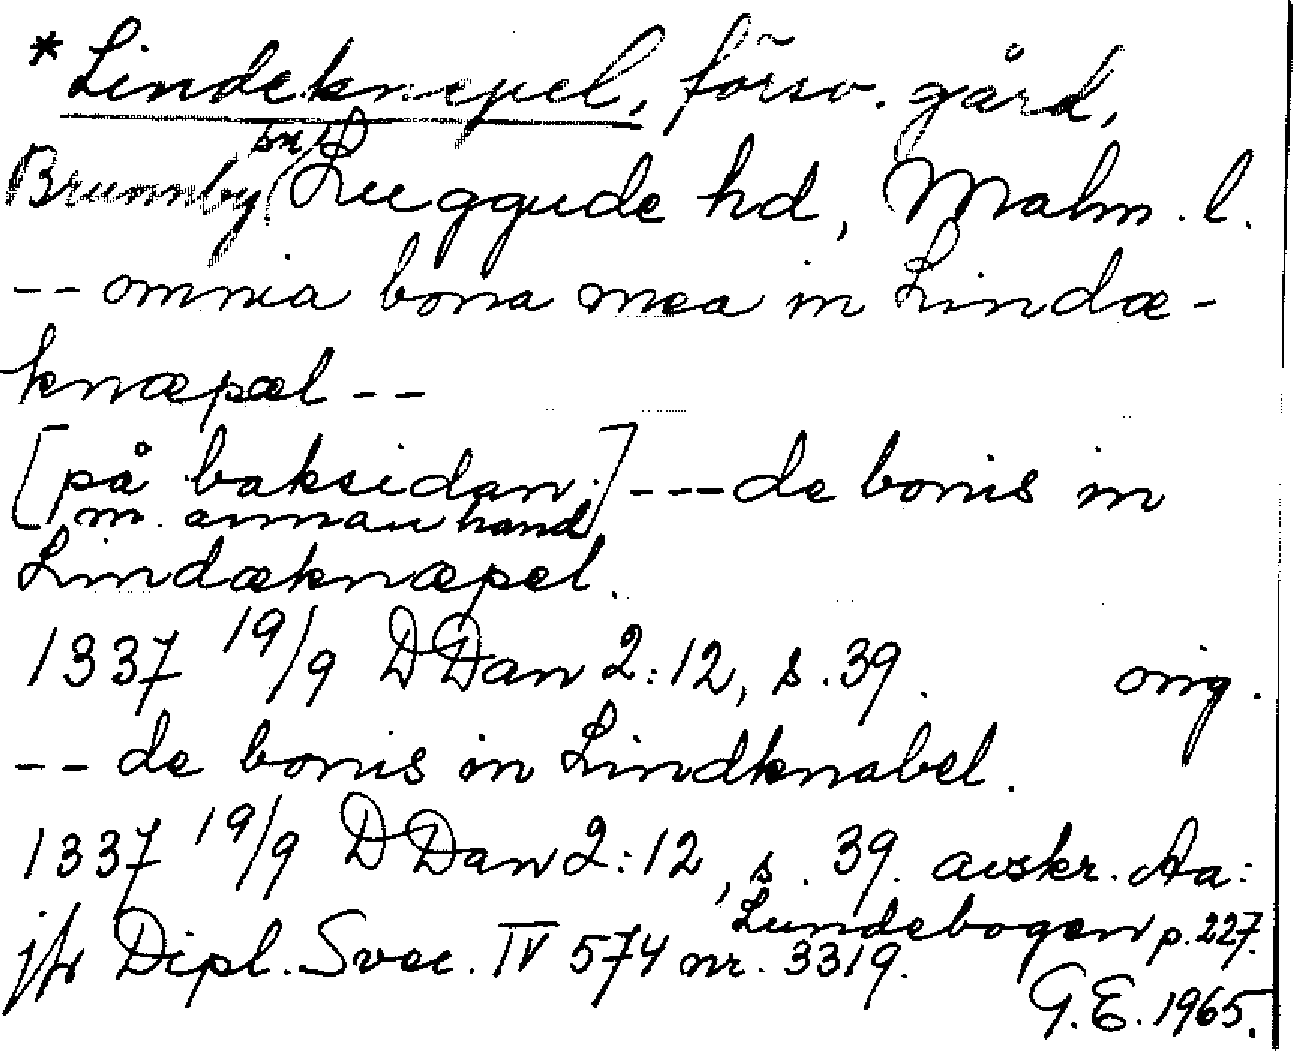 *Lindeknepel, försv. gård,
Brunnby sn, Luggude hd, Malm. l.
-- omnia bona mea in Lindæ-
knæpæl --
[på baksidan m. annan hand] --- de bonis in
Lindæknæpel.
1337 19/9 DDan 2:12, s. 39. orig.
-- de bonis in Lindknabel.
1337 19/9 DDan 2:12, s. 39. avskr. Aa:
Lundebogen p. 227.
jfr Dipl. Svec. IV 574 nr. 3319.
G.E. 1965.